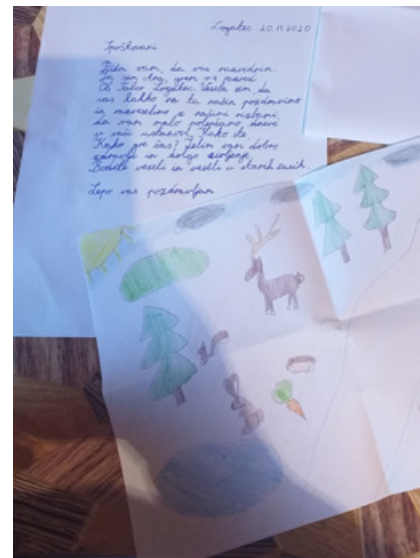 Logatec 20.11.2020
Spoštovani
Pišem vam, da vas razvedrim.
Jaz sem
OŠ Tabor Logatec. Vesela sem, da
vas lahko na ta način pozdravimo
in razveselimo z našimi risbami
da vam malo polepšamo dneve
v vaši ustanovi. Kako ste
Kako gre čas? Želim vam dobro
zdravje in dolgo življenje.
Bodite veseli in vestli v starih časih.
Lepo vas pozdravljam